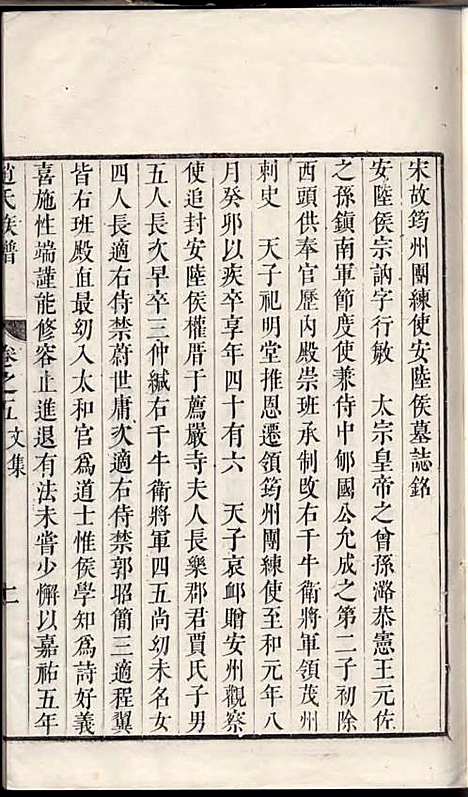 宋故筠州團練使安陸侯墓誌銘
安陸侯宗訥字行敏　太宗皇帝之曾孫潞恭憲王元佐
之孫鎮南軍節度使兼侍中郇國公允成之第二子初除
西頭供奉官歷内殿崇班承制改右千牛衛將軍領茂州
刺史　天子祀明堂推恩遷領筠州團練使至和元年八
月癸卯以疾卒享年四十有六　天子哀卹贈安州觀察
使追封安陸侯權厝于薦嚴寺夫人長樂郡君賈氏子男
五人長次早卒三仲緘右千牛衛將軍四五尚幼未名女
四人長適右侍禁蔚世庸次適右侍禁郭昭簡三適程翼
皆右班殿直最幼入太和宫爲道士惟侯學知爲詩好義
喜施性端謹能修容止進退有法未嘗少懈以嘉祐五年
趙氏族譜　卷之五　文集　十一